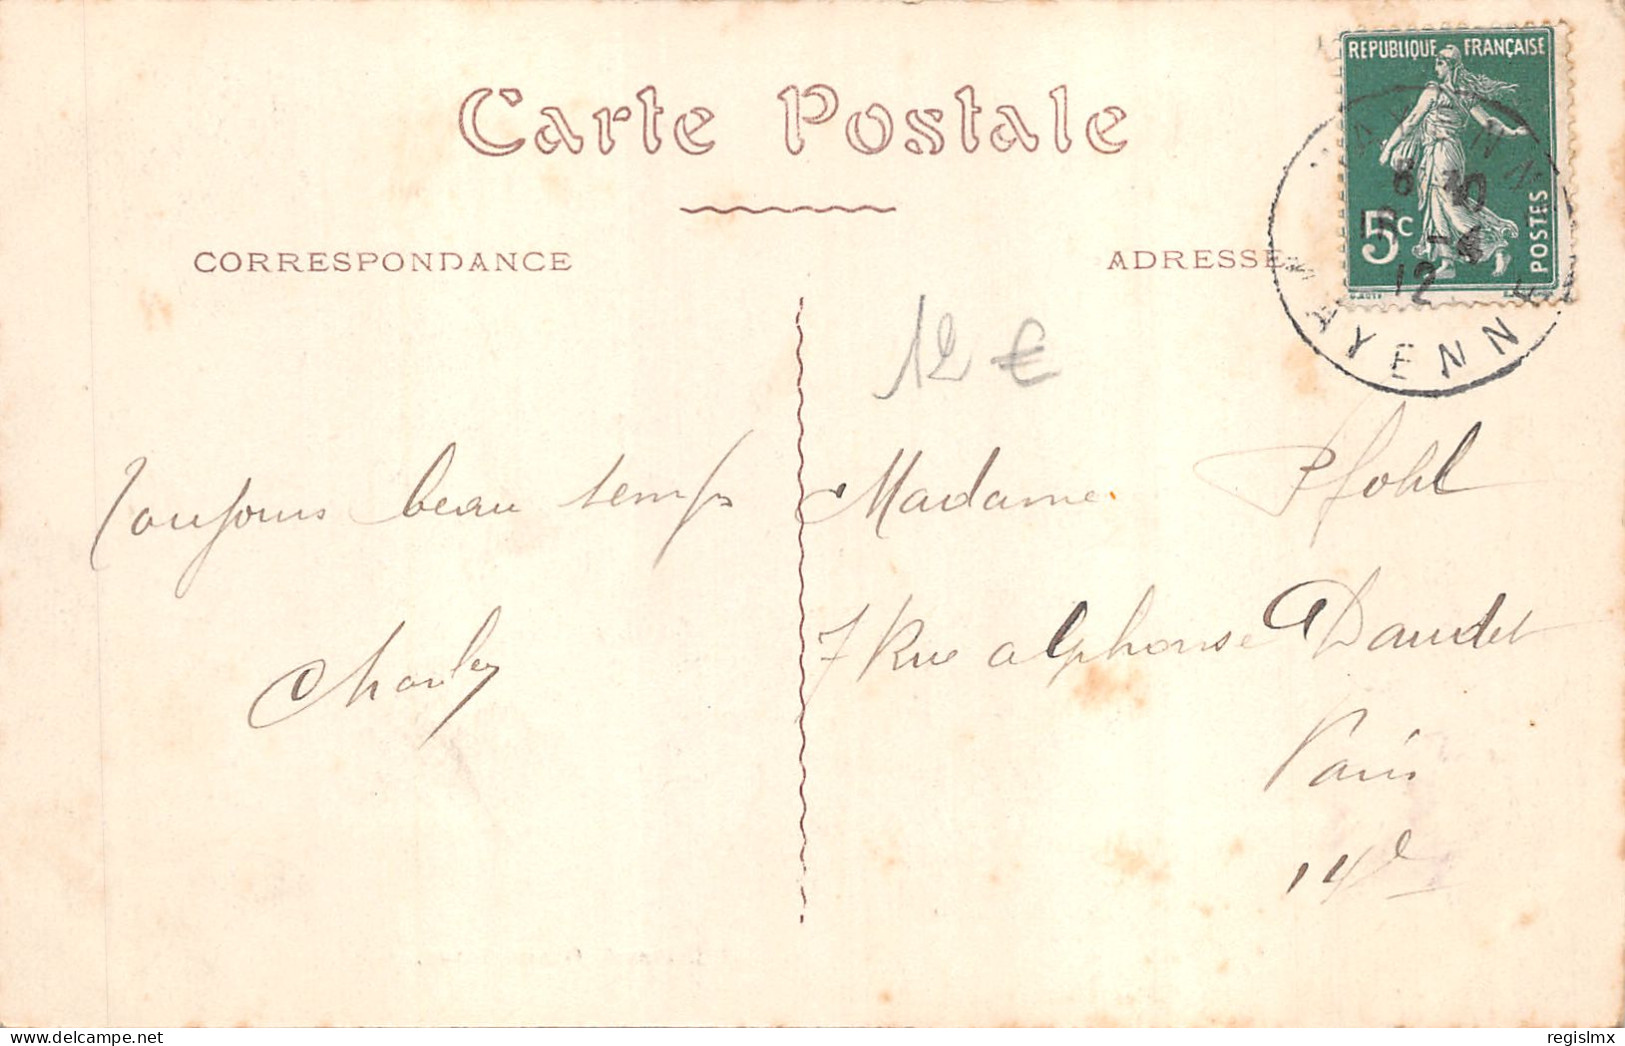 Carte Postale
CORRESPONDANCE
ADRESSE
REPUBLIQUE FRANÇAISE
5c
POSTES
MAYENNE
12
12 €
Toujours beau temps
Charley
Madame Pfohl
7 Rue alphonse Daudet
Paris
14e
delcampe.net
regislmx